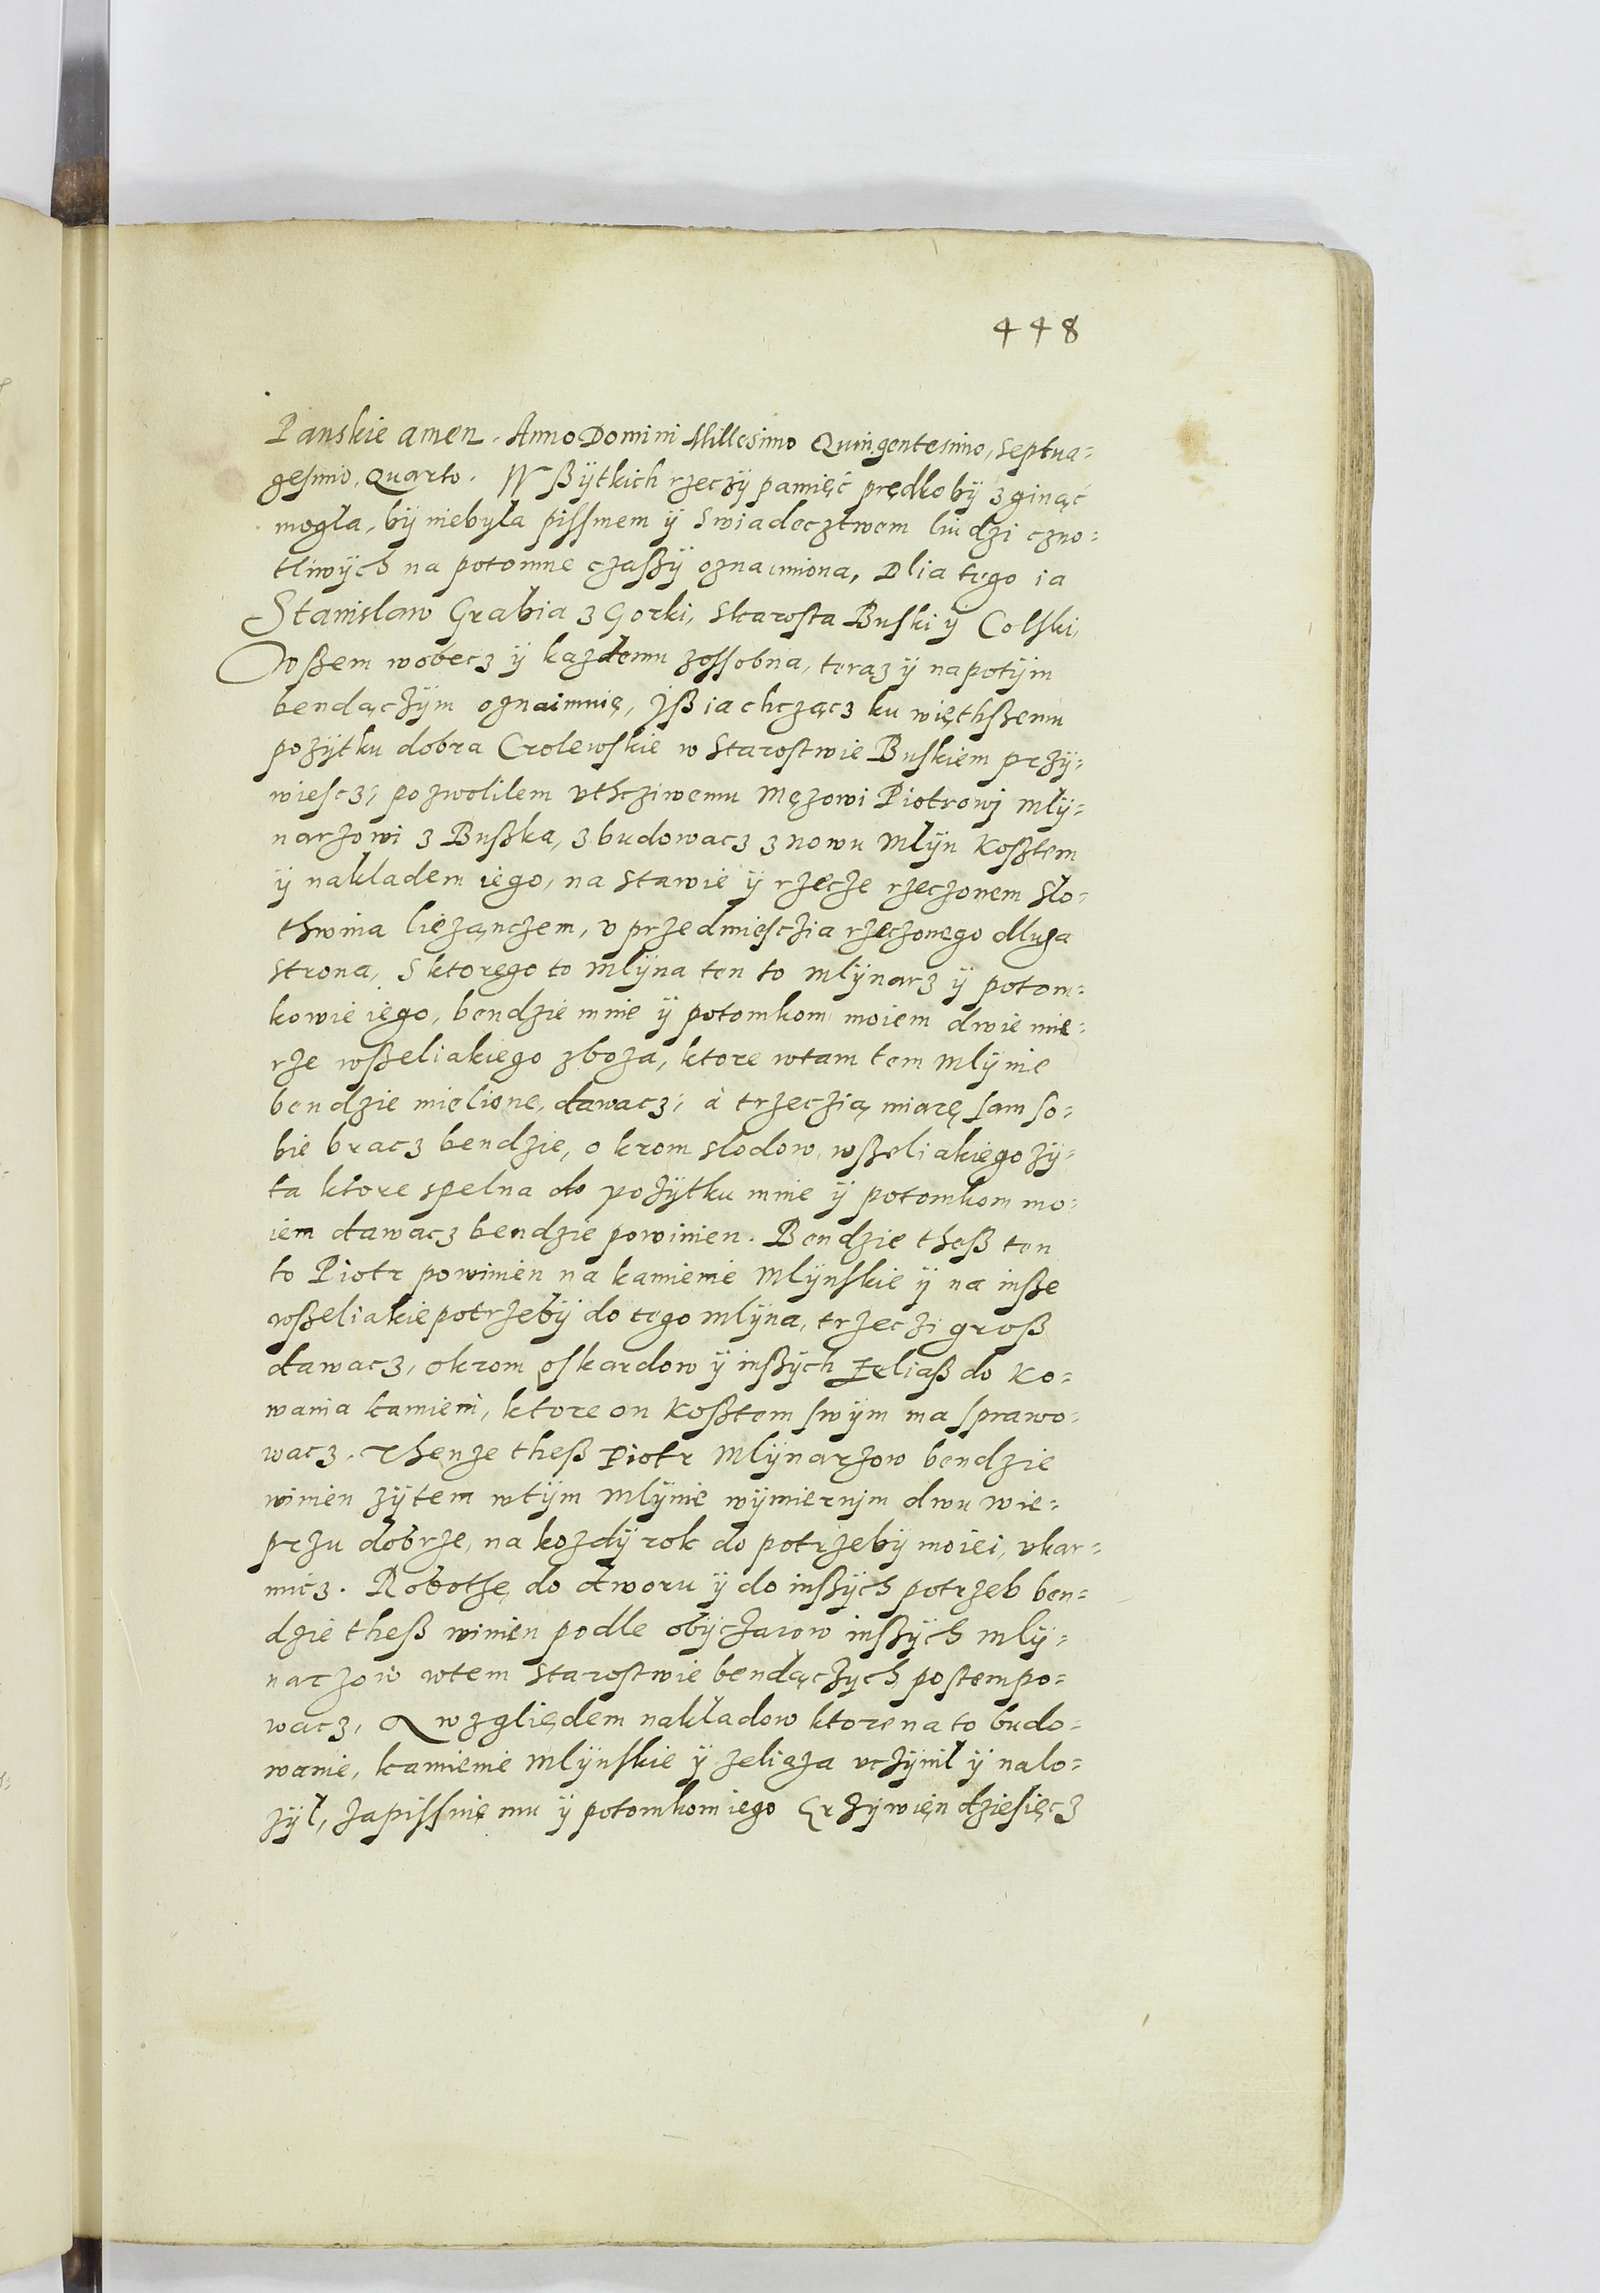 448
Panskie amen. Anno Domini Millesimo Quingentesimo, Septua=
gesimo, Quarto. Wßÿtkich rzeczÿ pamięć prędko bÿ zginąć
mogła, bÿ niebÿła pissmem ÿ swiadecztwem liudzi czno=
tliwÿch na potomne czaßÿ oznaimiona, Dlia tego ia
Stanisław Grabia z Gorki, Starosta Buski ÿ Colski,
Wßem wobecz ÿ kazdemu zossobna, teraz ÿ napotÿm
bendączÿm oznaimuię, Jß ia chcząc ku więthßemu
pozÿtku dobra Crolewskie w Starostwie Buskiem przÿ=
wiescz, pozwolilem uthcziwemu Męzowi Piotrowi Mlÿ=
narzowi z Bußka, zbudowacz znowu Mlÿn Koßtem
ÿ nakladem iego, na Stawie ÿ rzecze rzeczonem Slo=
thwina liezączem, u przedmiesczia rzeczonego dluga
strona, S ktorego to Mlÿna ten to Mlÿnarz ÿ potom=
kowie iego, bendzie mnie ÿ potomkom moiem dwie mie=
rze wßeliakiego zboza, ktore wtam tem Mlÿnie
bendzie mielione, dawacz, à trzeczią miarę sam so=
bie bracz bendzie, okrom slodow, wßeliakiego zÿ=
ta ktore spelna do pozÿtku mnie ÿ potomkom mo=
iem dawacz bendzie powinien. Bendzie theß ten
to Piotr powinien na kamienie Mlÿnskie ÿ na inße
wßeliakie potrzebÿ do tego Mlÿna, trzeczi groß
dawacz, okrom oskardow ÿ inßÿch zeliaß do Ko=
wania kamieni, ktore on Koßtem swÿm ma sprawo=
wacz. Thenze theß Piotr Mlÿnarzow bendzie
winien zÿtem wtÿm Mlÿnie wÿmiernÿm dwu Wie=
przu dobrze, na kozdÿ rok do potrzebÿ moiei, ukar=
micz. Robothę do dworu ÿ do inßÿch potrzeb ben=
dzie theß winien podle obÿczaiow inßÿch Mlÿ=
narzow wtem Starostwie bendączÿch postempo=
wacz, A wzgliędem nakładow ktore na to budo=
wanie, kamienie Mlÿnskie ÿ zeliąza uczÿnił ÿ nalo=
zÿł, zapissuię mu ÿ potomkom iego Grzÿwien dziesięcz